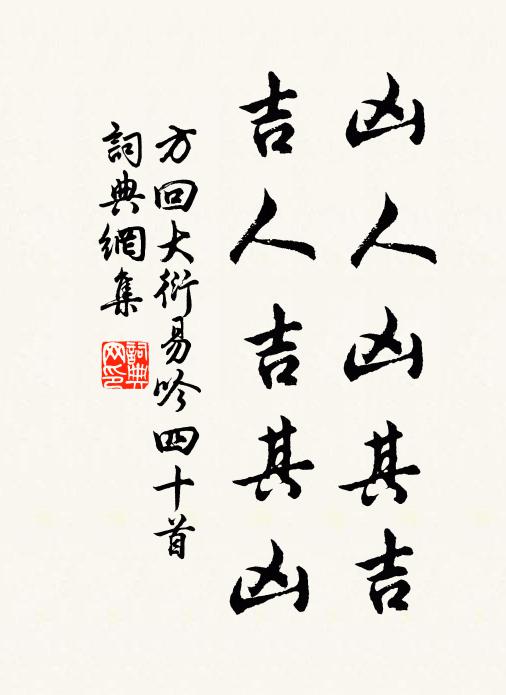 凶人凶其吉
吉人吉其凶
方回大衍易吟四十首
詞典網集
詞典網印